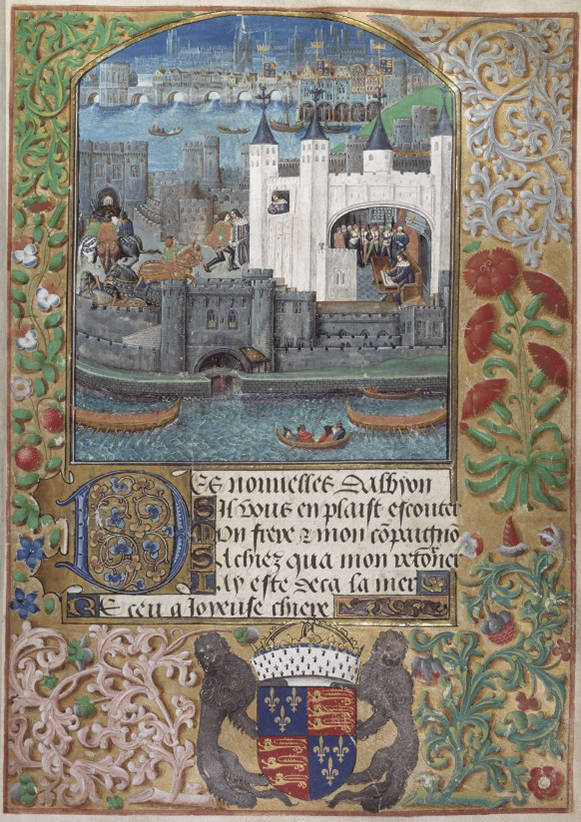 Des nouuelles dalbyon
Sil vous en plaist escouter
Mon frere & mon cōpaignō
Sachiez qua mon retorner
Iay este deca la mer
Receu a Ioyeuse chiere